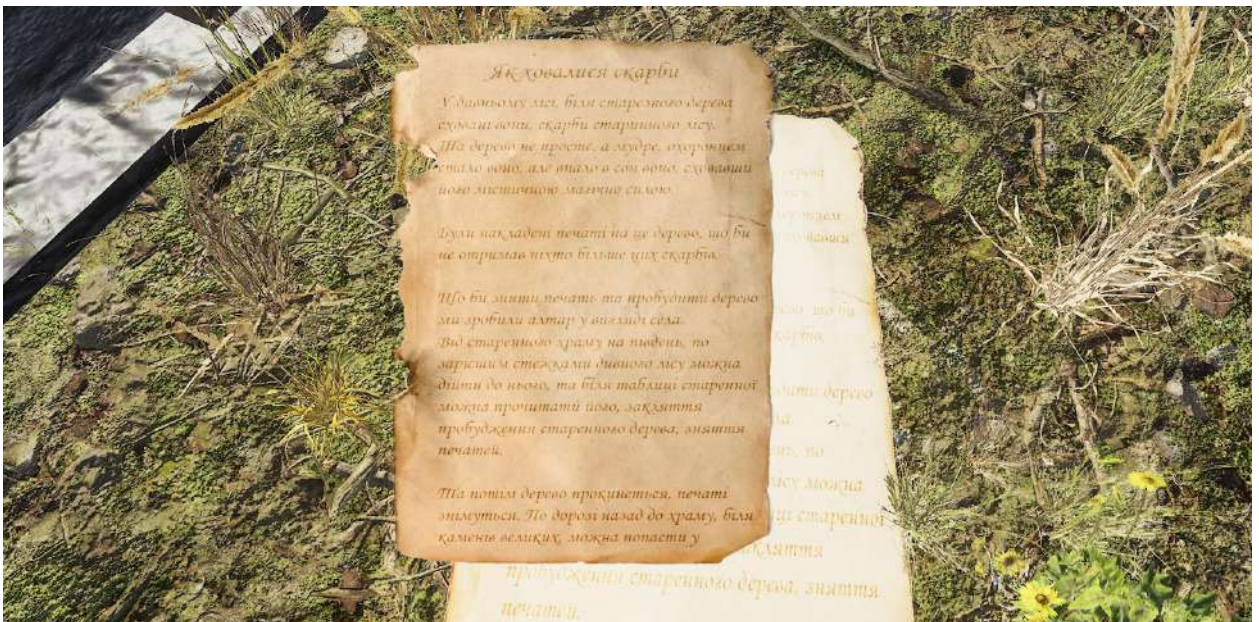 Як ховалися скарби
У давньому лісі, біля старезного дерева
сховані вони, скарби старинного лісу.
Та дерево не просте, а мудре, охоронцем
стало воно, але впало в сон воно, сховавши
його містичною магічно силою.
Були накладені печаті на це дерево, що би
не отримав ніхто більше цих скарбів.
Що би зняти печать та пробудити дерево
ми зробили алтар у вигляді села.
Від старенного храму на південь, по
зарісшим стежками дивного лісу можна
дійти до нього, та біля таблиці старенної
можна прочитати його, закляття
пробудження старенного дерева, зняття
печатей.
Та потім дерево прокинеться, печаті
знімуться. По дорозі назад до храму, біля
каменів великих, можна попасти у
що би
скарбів.
дерево
по
можна
старенної
закляття
пробудження старенного дерева, зняття
печатей.